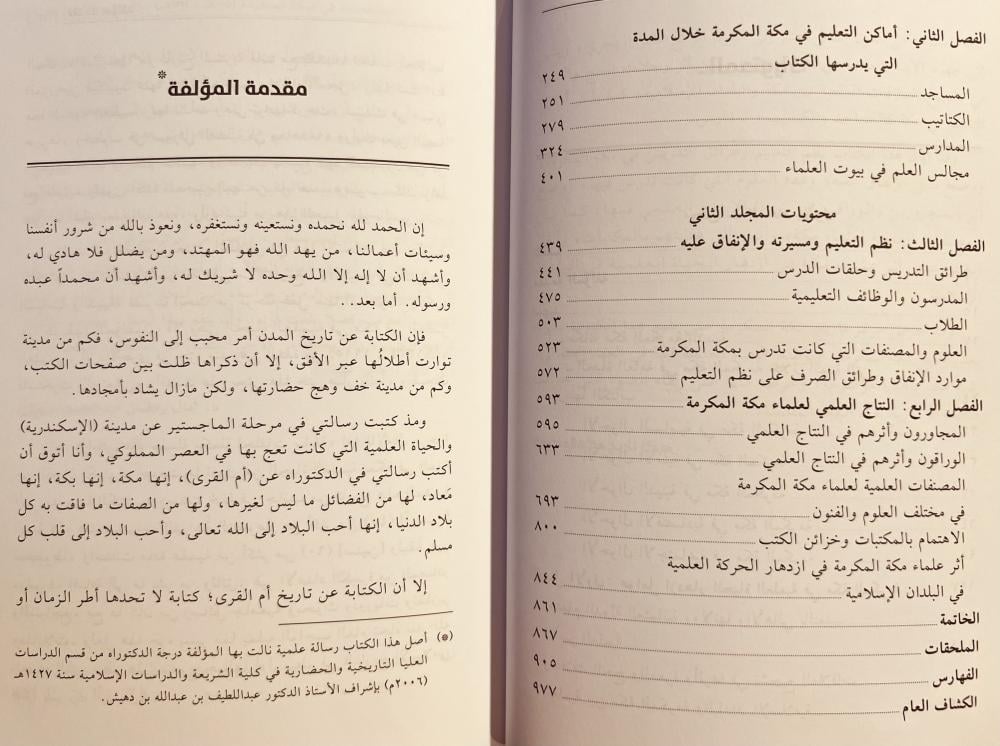 الفصل الثاني: أماكن التعليم في مكة المكرمة خلال المدة
التي يدرسها الكتاب ٢٤٩
المساجد ٢٥١
الكتاتيب ٢٧٩
المدارس ٣٢٤
مجالس العلم في بيوت العلماء ٤٠١
محتويات المجلد الثاني
الفصل الثالث: نظم التعليم ومسيرته والإنفاق عليه ٤٣٩
طرائق التدريس وحلقات الدرس ٤٤١
المدرسون والوظائف التعليمية ٤٧٥
الطلاب ٥٠٣
العلوم والمصنفات التي كانت تدرس بمكة المكرمة ٥٢٣
موارد الإنفاق وطرائق الصرف على نظم التعليم ٥٧٢
الفصل الرابع: النتاج العلمي لعلماء مكة المكرمة ٥٩٣
المجاورون وأثرهم في النتاج العلمي ٥٩٥
الوراقون وأثرهم في النتاج العلمي ٦٣٣
المصنفات العلمية لعلماء مكة المكرمة
في مختلف العلوم والفنون ٦٩٣
الاهتمام بالمكتبات وخزائن الكتب ٨٠٠
أثر علماء مكة المكرمة في ازدهار الحركة العلمية
في البلدان الإسلامية ٨٤٤
الخاتمة ٨٦١
الملحقات ٨٦٧
الفهارس ٩٠٥
الكشاف العام ٩٧٧
مقدمة المؤلفة*
إن الحمد لله نحمده ونستعينه ونستغفره، ونعوذ بالله من شرور أنفسنا
وسيئات أعمالنا، من يهد الله فهو المهتد، ومن يضلل فلا هادي له،
وأشهد أن لا إله إلا الله وحده لا شريك له، وأشهد أن محمداً عبده
ورسوله. أما بعد..
فإن الكتابة عن تاريخ المدن أمر محبب إلى النفوس، فكم من مدينة
توارت أطلالُها عبر الأفق، إلا أن ذكراها ظلت بين صفحات الكتب،
وكم من مدينة خف وهج حضارتها، ولكن مازال يشاد بأمجادها.
ومذ كتبت رسالتي في مرحلة الماجستير عن مدينة (الإسكندرية)
والحياة العلمية التي كانت تعج بها في العصر المملوكي، وأنا أتوق أن
أكتب رسالتي في الدكتوراه عن (أم القرى)، إنها مكة، إنها بكة، إنها
مَعاد، لها من الفضائل ما ليس لغيرها، ولها من الصفات ما فاقت به كل
بلاد الدنيا، إنها أحب البلاد إلى الله تعالى، وأحب البلاد إلى قلب كل
مسلم.
إلا أن الكتابة عن تاريخ أم القرى؛ كتابة لا تحدها أطر الزمان أو
(*) أصل هذا الكتاب رسالة علمية نالت بها المؤلفة درجة الدكتوراه من قسم الدراسات
العليا التاريخية والحضارية في كلية الشريعة والدراسات الإسلامية سنة ١٤٢٧هـ
(٢٠٠٦م) بإشراف الأستاذ الدكتور عبداللطيف بن عبدالله بن دهيش.